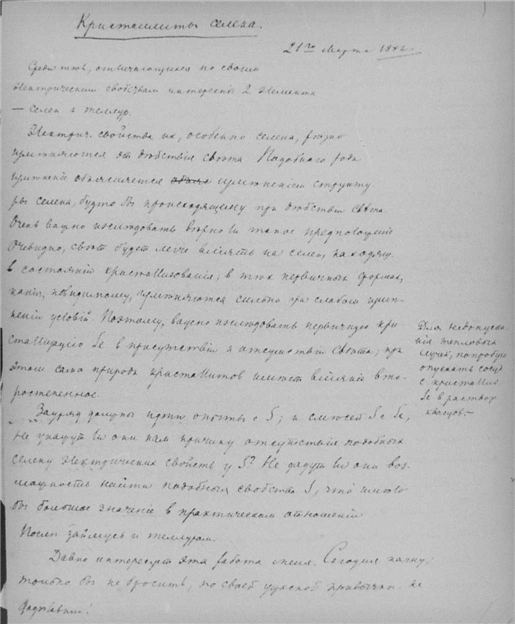 Кристаллиты селена.
21го Марта 1882
Среди тѣл, отличающихся по своим
электрическим свойствам интересны 2 элемента
— селен и теллур.
Электрич. свойства их, особенно селена, резко
измѣняются от дѣйствія свѣта. Подобного рода
измѣненія объясняется измѣненіем структу
ры селена, будто бы происходящему при дѣйствіи свѣта.
Очень важно изслѣдовать вѣрно ли такое предположеніе
Очевидно, свѣт будет легче вліять на селен, находящ.
в состояніи кристаллизованія, в тѣх первичных формах,
какія, повидимому, измѣняются сильно при слабом измѣ-
неніи условій. Поэтому, важно изслѣдовать первичную кри
сталлизацію Se в присутствіи и отсутствіи свѣта; при
этом сама природа кристаллитов имѣет вліяніе вто-
ростепенное.
Для недопуска
нія тепловых
лучей, попробую
опускать сосуд
с кристаллиз.
Se в раствор
квасцов.—
Зауряд должны идти опыты с S; и смѣсей S с Se,
не укажут ли они нам причину отсутствія подобных
селену электрических свойств у S? Не дадут ли они воз-
можность найти подобныя свойства S, что имѣло
бы большое значеніе в практическом отношеніи
Послѣ займусь и теллуром.
Давно интересует эта работа меня. Сегодня начну;
только бы не бросить, по своей ужасной привычки, не